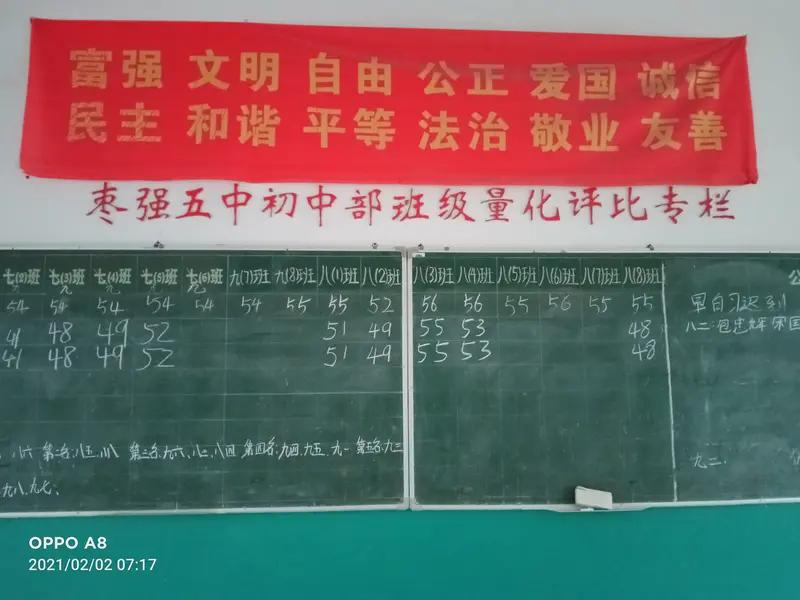 富强 文明 自由 公正 爱国 诚信
民主 和谐 平等 法治 敬业 友善
枣强五中初中部班级量化评比专栏
七(2)班 七(3)班 七(4)班 七(5)班 七(6)班 九(7)班 九(8)班 八(1)班 八(2)班 八(3)班 八(4)班 八(5)班 八(6)班 八(7)班 八(8)班 公
54 54 54 54 54 54 55 55 52 56 56 55 56 55 55 早自习迟到
41 48 49 52 51 49 55 53 48 八二:
41 48 49 52 51 49 55 53 48
八六 第二名:八五、八八 第三名:九六、八二、八四 第四名:九四、九五、九一 第五名:九三
九二.
九八、九七、
OPPO A8
2021/02/02 07:17